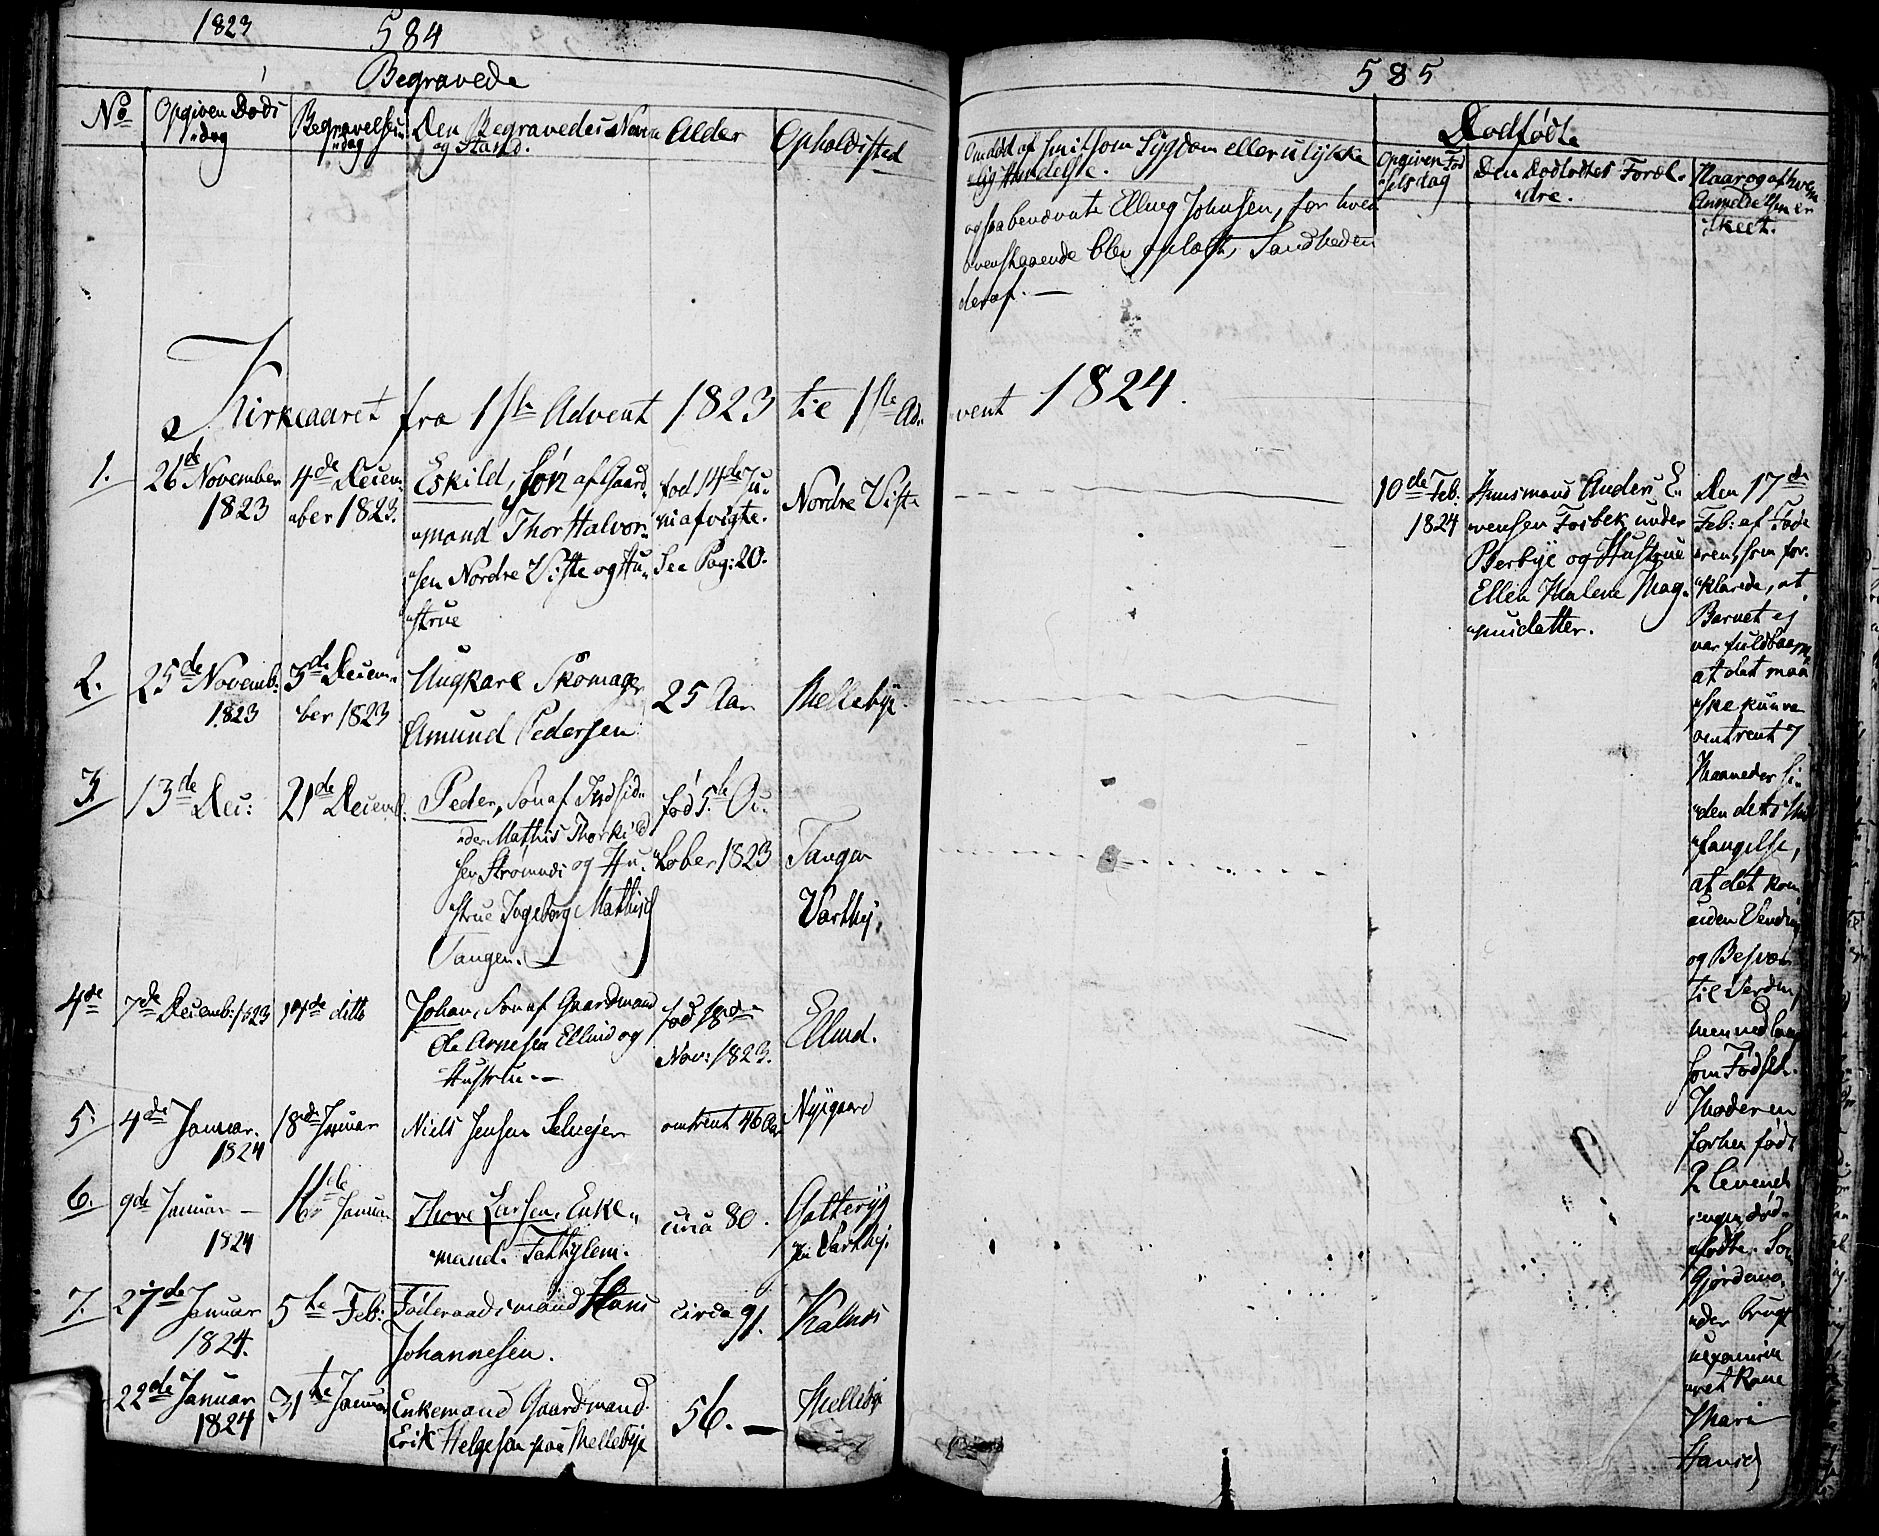 1823
584
Begravede
No
Opgiven Døds
"dag
Begravelses
"dag
Den Begravedes Navn
og Stand.
Alder
Opholdssted
Kirkeaaret fra 1ste Advent 1823 til 1ste Ad-
1.
26de November
1823
4de Decem-
"ber 1823.
Eskild, Søn af Gaard-
"mand Thor Halvor-
"sen Nordre Viste og Hu-
"strue
fød 14de Ju-
"ni afvigte.
See Pag: 20.
Nordre Viste
2.
25de Novemb:
1823
3de Decem-
"ber 1823
Ungkarl Skomager
Amund Pedersen
25 Aar
Mellebye
3.
13de Dec:
21de Decemb.
Peder, Søn af Indsid-
"der Mathis Thorkild
"sen Strømnes og Hu-
"strue Ingeborg Mathisd
Tangen.
fød 5te Oc-
"tober 1823
Tangen
Vartbye
4de
7de Decemb: 1823
14de ditto
Johan, Søn af Gaardmand
Ole Arnesen Ellind og
Hustrue.
fød 18de
Nov: 1823.
Ellind.
5.
4de Januar.
1824
18de Januar
Niels Jensen
omtrent 46 Aar
Nygaard
6.
9de Januar
1824
Januar
Thore Larsen, Enke-
"mand.
circa 80.
7.
27de Januar
1824.
5te Feb:
Føderaadsmand Hans
Johannesen.
circa 91.
Kalnes
22de Januar
1824
31te Januar
Enkemand Gaardmand
Erik Helgesen paa Mellebye
56.
Mellebye
585
Om død af smitsom Sygdom eller ulykke
"lig Hændelse.
ogsaa benævnte Elling Johnsen, for hvem
ovenstaaende blev oplæst, Sandheden
deraf.
"vent 1824.
Dødfødte
Opgiven Fød
"selsdag
Den Dødfødtes Foræl-
"dre.
Naar og af hvem
Anmeldelsen er
skeet.
10de Feb.
1824
Huusmand Anders E-
"vensen Fosbek under
Berbye og Hustrue
Ellen Malene Mag-
"nusdatter.
Den 17de
Feb: af Fade
"ren, som for-
"klarede, at
Barnet ej
var fuldbaaren
at det maa
"ske kunne
omtrent 7
Maaneder si-
"den dets Und
"fangelse,
at det kom
uden Vending
og Besvær
til Verden,
men ved
som Fødsel.
Moderen
forhen født
2 levende
ingen død-
"fødte. Som
Gjordemo-
"der brugt
uexamine
"ret Kone
Mari
Hansd